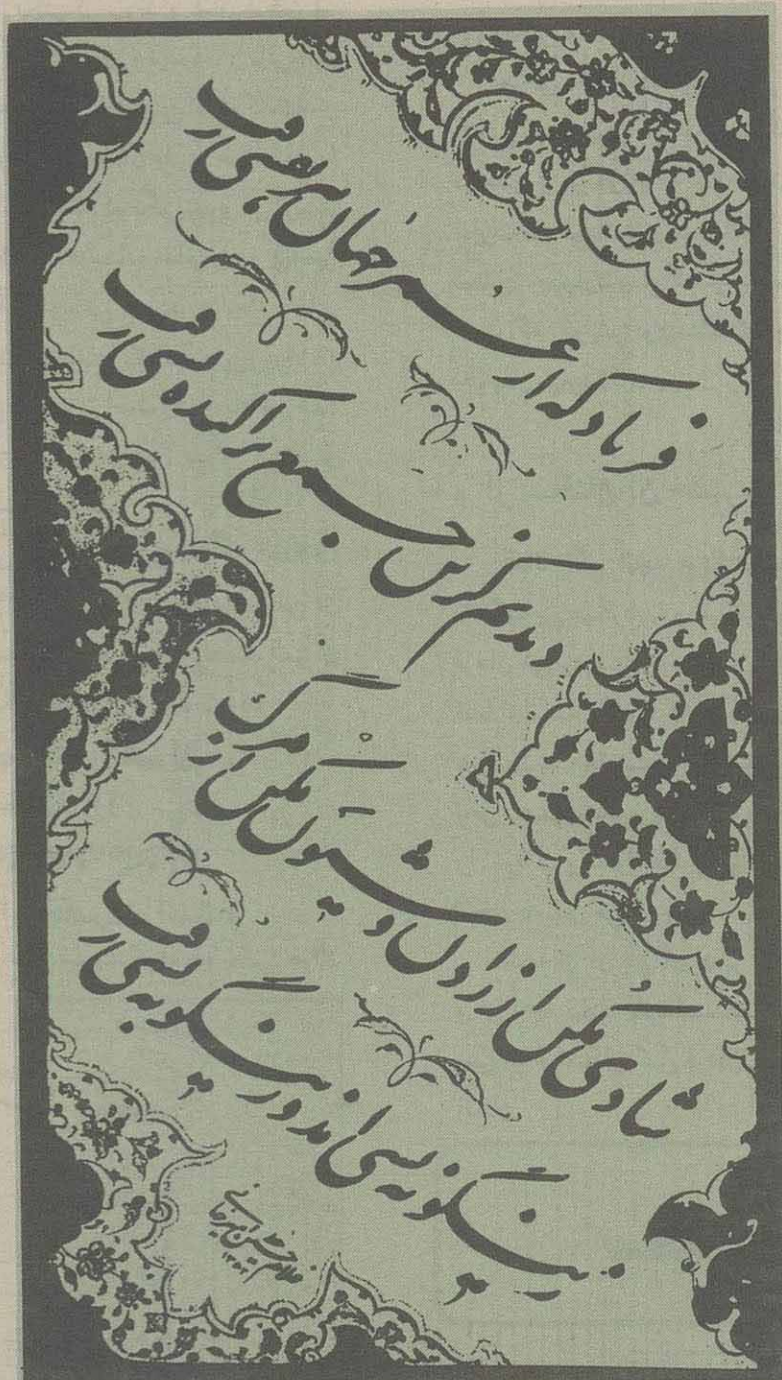 فریاد که از عمر جهان هر نفسی رفت
دیدیم کزین جمع پراکنده کسی رفت
شادی مکن از زادن و شیون مکن از مرگ
زینگونه بسی آمد و زینگونه بسی رفت
غلامحسین امیرخانی